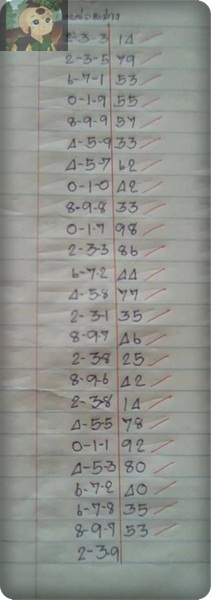 2-3-3 14
2-3-5 79
6-7-1 53
0-1-9 55
8-9-9 57
4-5-9 33
4-5-7 62
0-1-0 42
8-9-8 33
0-1-7 98
2-3-3 86
6-7-2 44
4-5-8 77
2-3-1 35
8-9-7 46
2-3-8 25
8-9-6 42
2-3-8 14
4-5-5 78
0-1-1 92
4-5-3 80
6-7-2 40
6-7-8 35
8-9-7 53
2-3-9